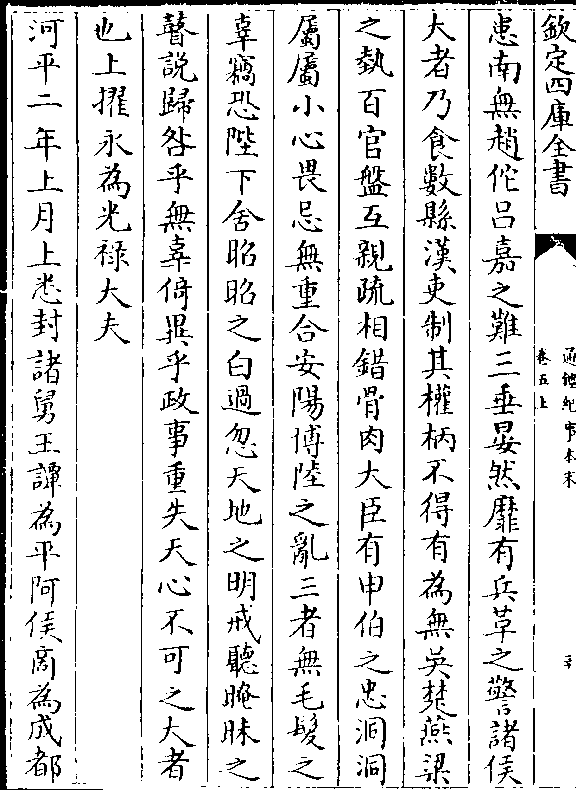 欽定四庫全書
通鑑紀事本末
卷五上
患南無趙佗吕嘉之難三垂晏然靡有兵革之警諸侯
大者乃食數縣漢吏制其權柄不得有為無吳楚燕梁
之埶百官盤互親疏相錯骨肉大臣有申伯之忠洞洞
屬屬小心畏忌無重合安陽博陸之亂三者無毛髮之
辜竊恐陛下舍昭昭之白過忽天地之明戒聽晻昧之
瞽説歸咎乎無辜倚異乎政事重失天心不可之大者
也上擢永為光禄大夫
河平二年上月上悉封諸舅王譚為平阿侯商為成都